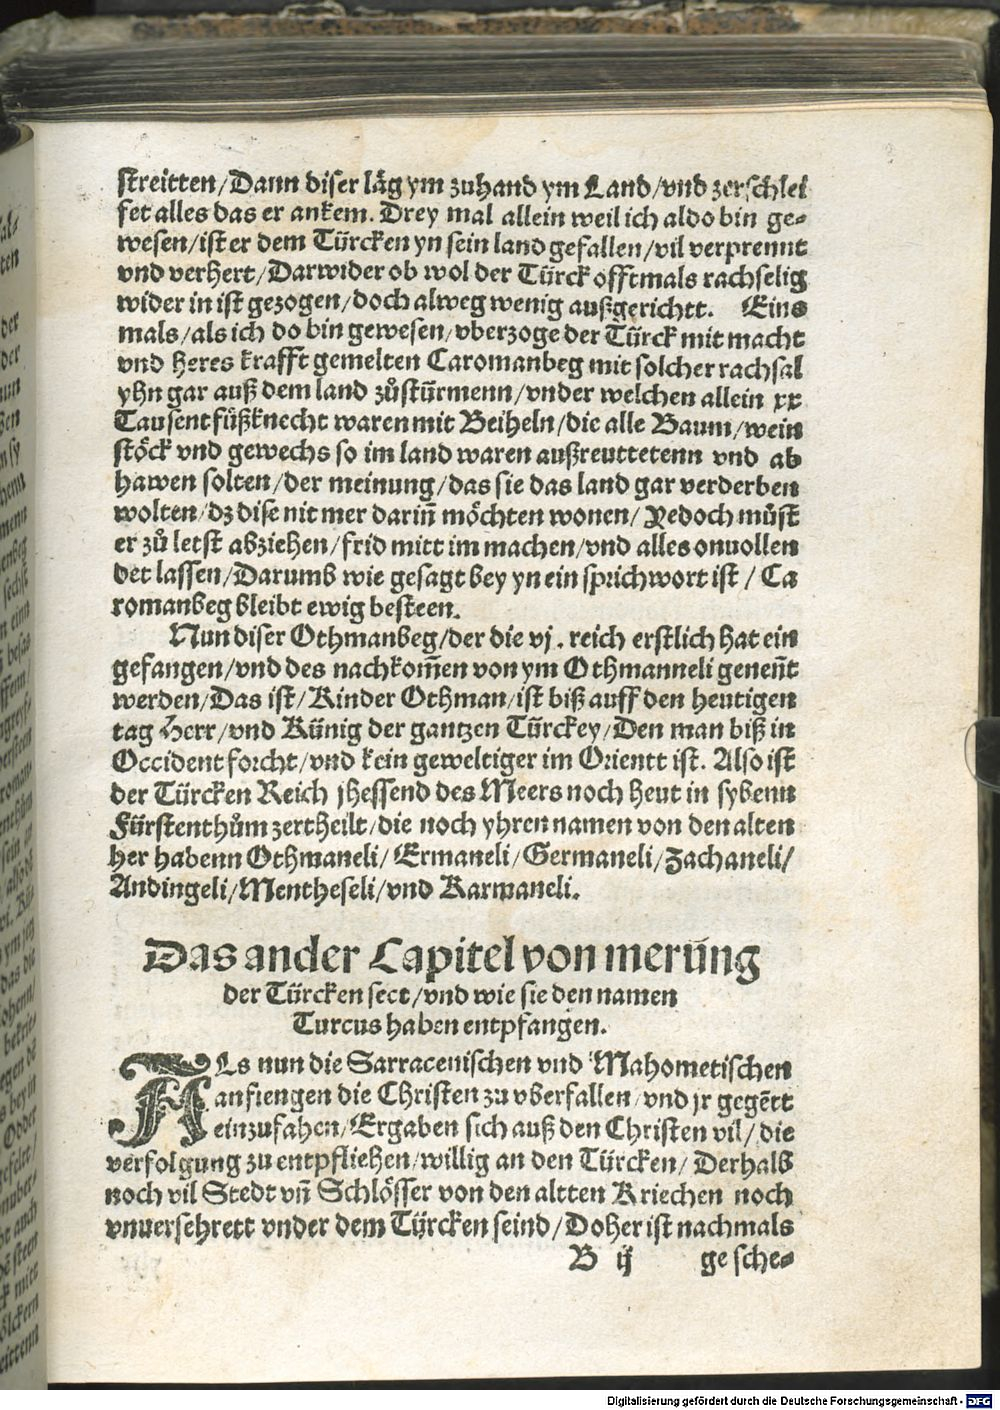 streitten/Dann diser läg ym zuhand ym Land/vnd zerschlei
fet alles das er ankem. Drey mal allein weil ich aldo bin ge-
wesen/ist er dem Türcken yn sein land gefallen/vil verprennt
vnd verhert/Darwider ob wol der Türck offtmals rachselig
wider in ist gezogen/doch alweg wenig außgerichtt. Eins
mals/als ich do bin gewesen/vberzoge der Türck mit macht
vnd heres krafft gemelten Caromanbeg mit solcher rachsal
yhn gar auß dem land zůstürmenn/vnder welchen allein xx
Tausent fůßknecht waren mit Beiheln/die alle Baum/wein
stöck vnd gewechs so im land waren außreuttetenn vnd ab
hawen solten/der meinung/das sie das land gar verderben
wolten/dz dise nit mer dariñ möchten wonen/Yedoch můst
er zů letst abziehen/frid mitt im machen/vnd alles onuollen
det lassen/Darumb wie gesagt bey yn ein sprichwort ist/Ca
romanbeg bleibt ewig besteen.
Nun diser Othmanbeg/der die vj. reich erstlich hat ein
gefangen/vnd des nachkom̃en von ym Othmanneli geneñt
werden/Das ist/Kinder Othman/ist biß auff den heutigen
tag Herr/vnd Künig der gantzen Türckey/Den man biß in
Occident forcht/vnd kein geweltiger im Orientt ist. Also ist
der Türcken Reich jhessend des Meers noch heut in sybenn
Fürstenthům zertheilt/die noch yhren namen von den alten
her habenn Othmaneli/Ermaneli/Germaneli/Zachaneli/
Andingeli/Mentheseli/vnd Karmaneli.
Das ander Capitel von merũng
der Türcken sect/vnd wie sie den namen
Turcus haben entpfangen.
Als nun die Sarracenischen vnd Mahometischen
anfiengen die Christen zu vberfallen/vnd jr gegẽtt
einzufahen/Ergaben sich auß den Christen vil/die
verfolgung zu entpfliehen/willig an den Türcken/Derhalb
noch vil Stedt vñ Schlösser von den altten Kriechen noch
vnuersehrett vnder dem Türcken seind/Doher ist nachmals
B ij gesche-
Digitalisierung gefördert durch die Deutsche Forschungsgemeinschaft - DFG